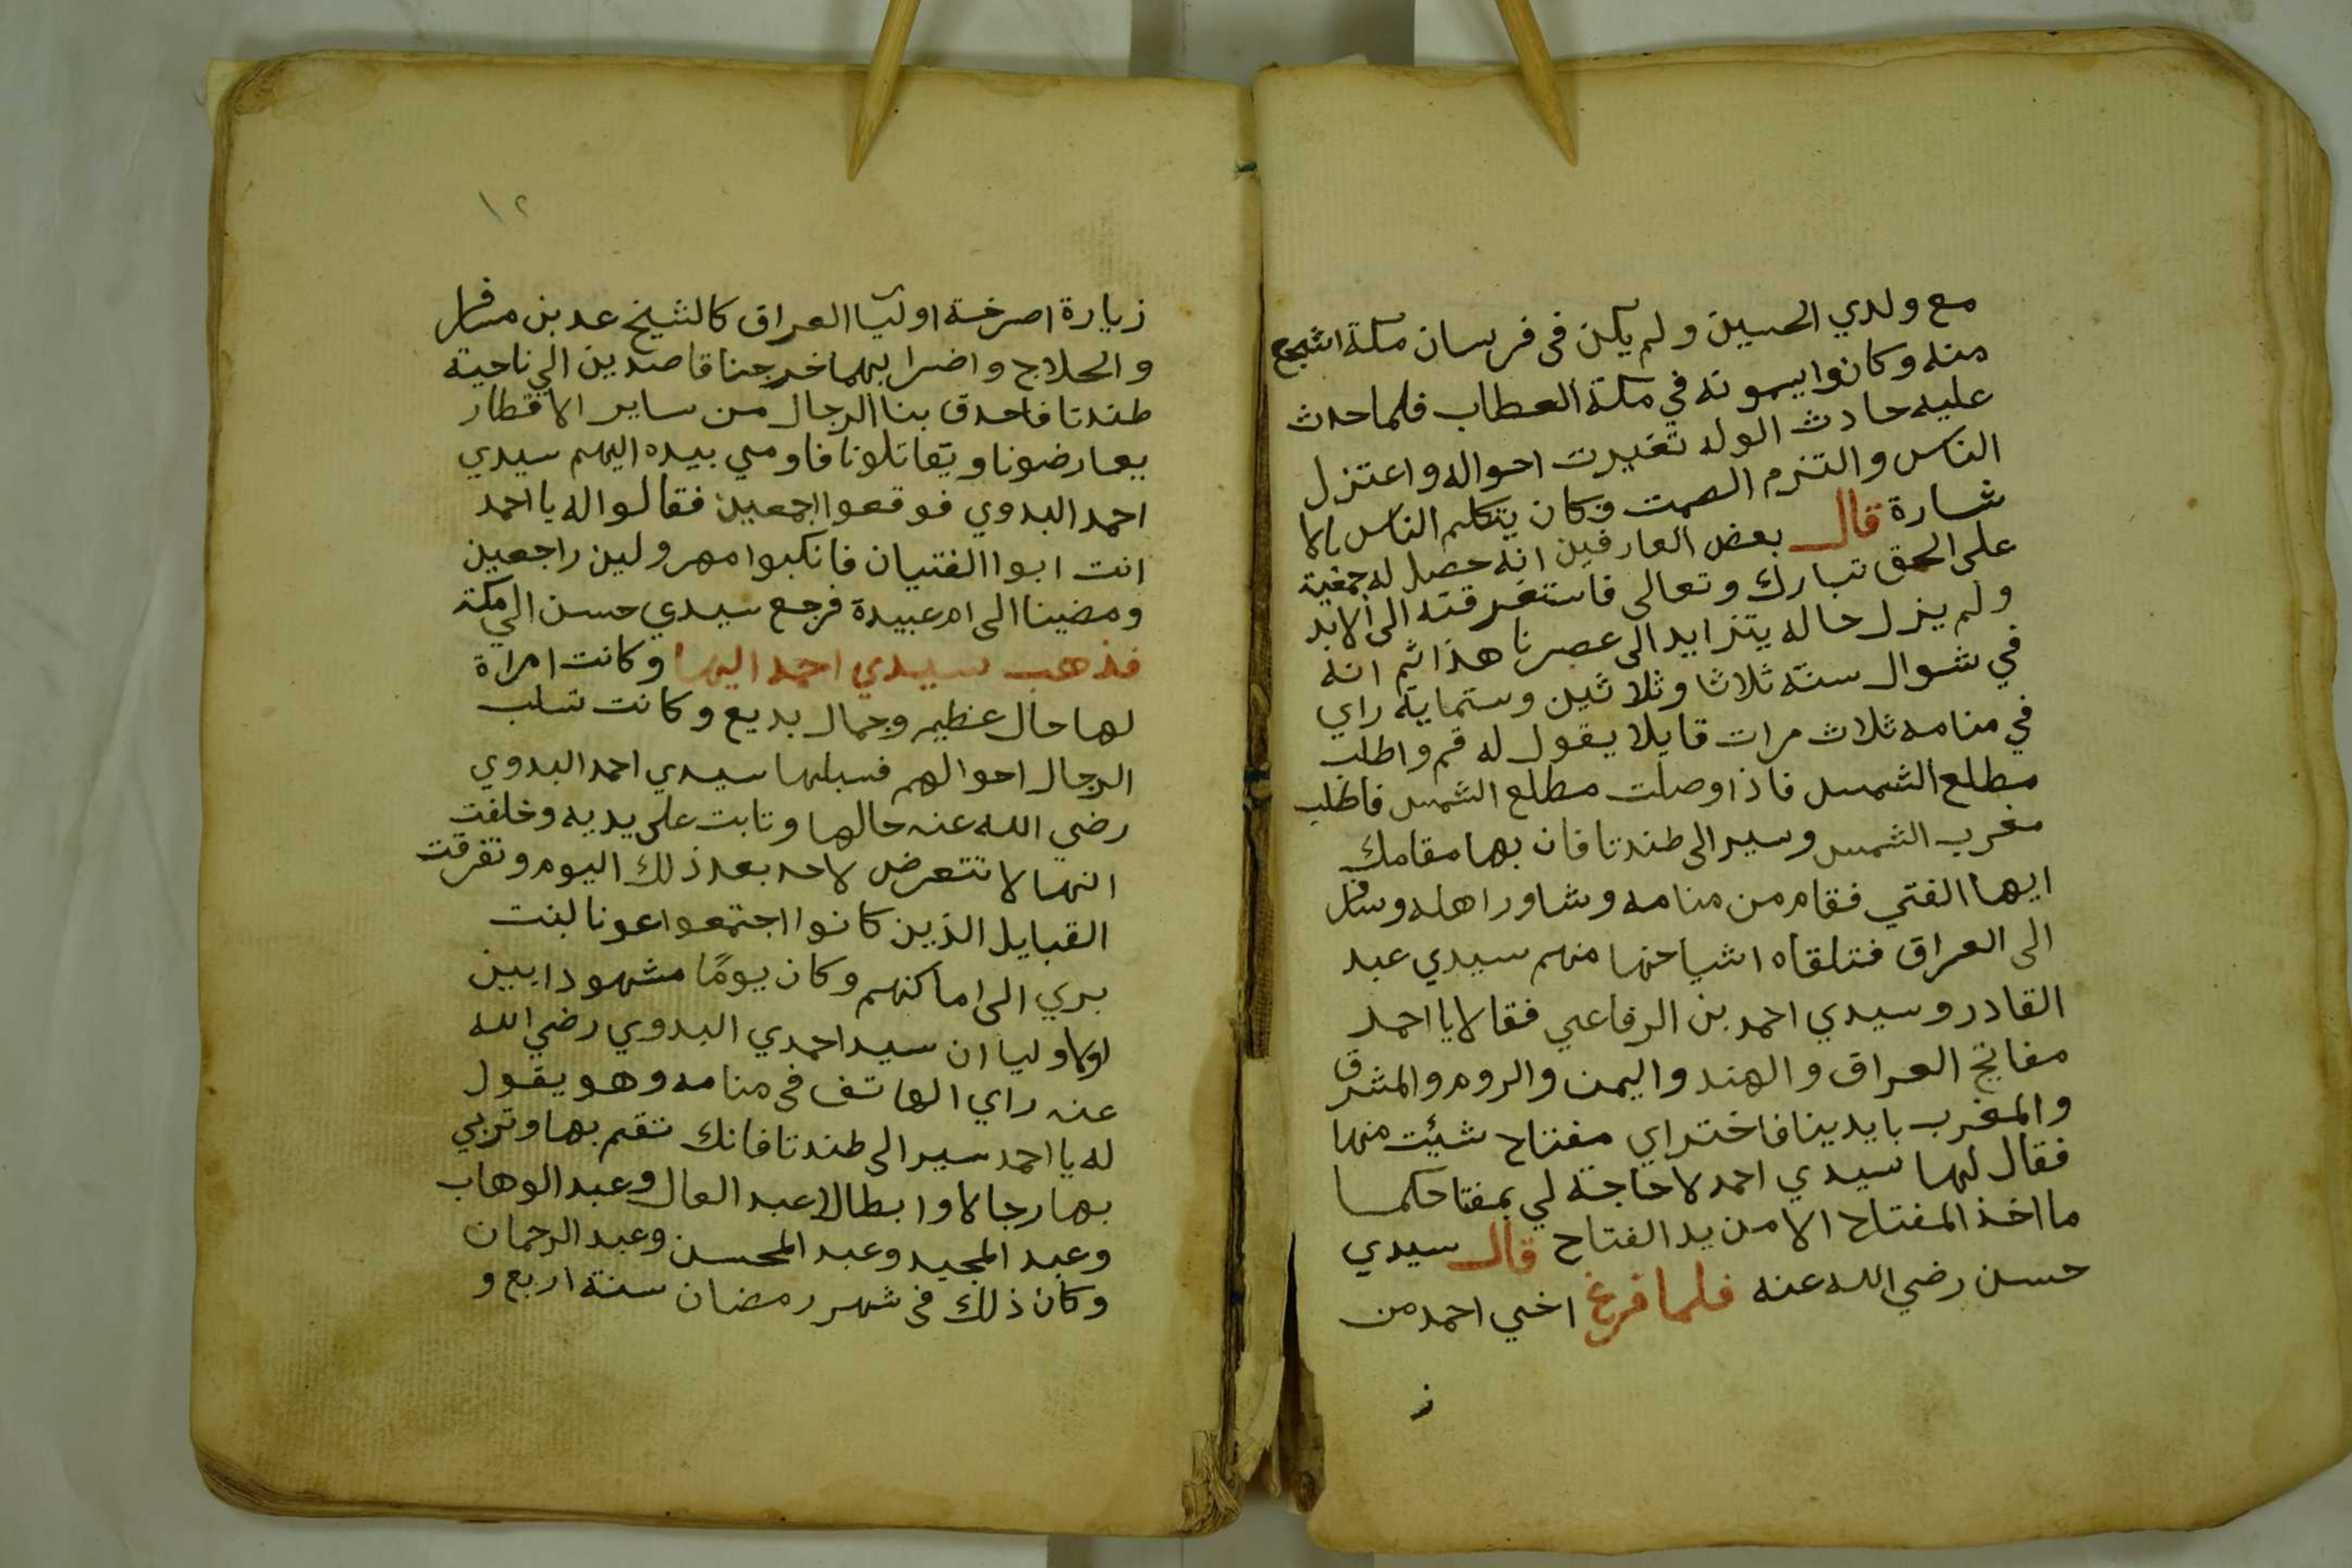 مع ولدي الحسين ولم يكن في فرسان مكة اشجع
منه وكانوا يسمونه في مكة العطاب فلما حدث
عليه حادث الوله تغيرت احواله واعتزل
الناس والتزم الصمت وكان يتكلم الناس بالا
شارة قال بعض العارفين انه حصل له جمعية
على الحق تبارك وتعالى فاستغرقته الى الابد
ولم يزل حاله يتزايد الى عصرنا هذا ثم انه
في شوال سنة ثلاثا وثلاثين وستماية راي
في منامه ثلاث مرات قايلا يقول له قم واطلب
مطلع الشمس فاذا وصلت مطلع الشمس فاطلب
مغرب الشمس وسير الى طندتا فان بها مقامك
ايها الفتي فقام من منامه وشاور اهله وسافر
الى العراق فتلقاه اشياخها منهم سيدي عبد
القادر وسيدي احمد بن الرفاعي فقالا يا احمد
مفاتيح العراق والهند واليمن والروم والمشرق
والمغرب بايدينا فاختر اي مفتاح شئيت منها
فقال لهما سيدي احمد لا حاجة لي بمفتاحكما
ما اخذ المفتاح الا من يد الفتاح قال سيدي
حسن رضي الله عنه فلما فرغ اخي احمد من
ز
١٢
زيارة اضرخة اوليا العراق كالشيخ عد بن مسافر
والحلاج واضرابهما خرجنا قاصدين الي ناحية
طندتا فاحدق بنا الرجال من ساير الاقطار
يعارضونا ويقاتلونا فاومي بيده اليهم سيدي
احمد البدوي فوقعوا اجمعين فقالوا له يا احمد
انت ابوا الفتيان فانكبوا مهرولين راجعين
ومضينا الى ام عبيدة فرجع سيدي حسن الي مكة
فذهب سيدي احمد اليها وكانت امراة
لها حال عظيم وجمال بديع وكانت تسلب
الرجال احوالهم فسبلها سيدي احمد البدوي
رضي الله عنه حالها وتابت على يديه وخلفت
انها لا تتعرض لاحد بعد ذلك اليوم وتفرقت
القبايل الذين كانوا اجتمعوا عونا لبنت
بري الى اماكنهم وكان يومًا مشهودا بين
الاوليا ان سيد احمدي البدوي رضي الله
عنه راي الهاتف في منامه وهو يقول
له يا احمد سير الى طندتا فانك تقم بها وتربي
بها رجالا وابطالا عبد العال وعبد الوهاب
وعبد المجيد وعبد المحسن وعبد الرحمان
وكان ذلك في شهر رمضان سنة اربع و